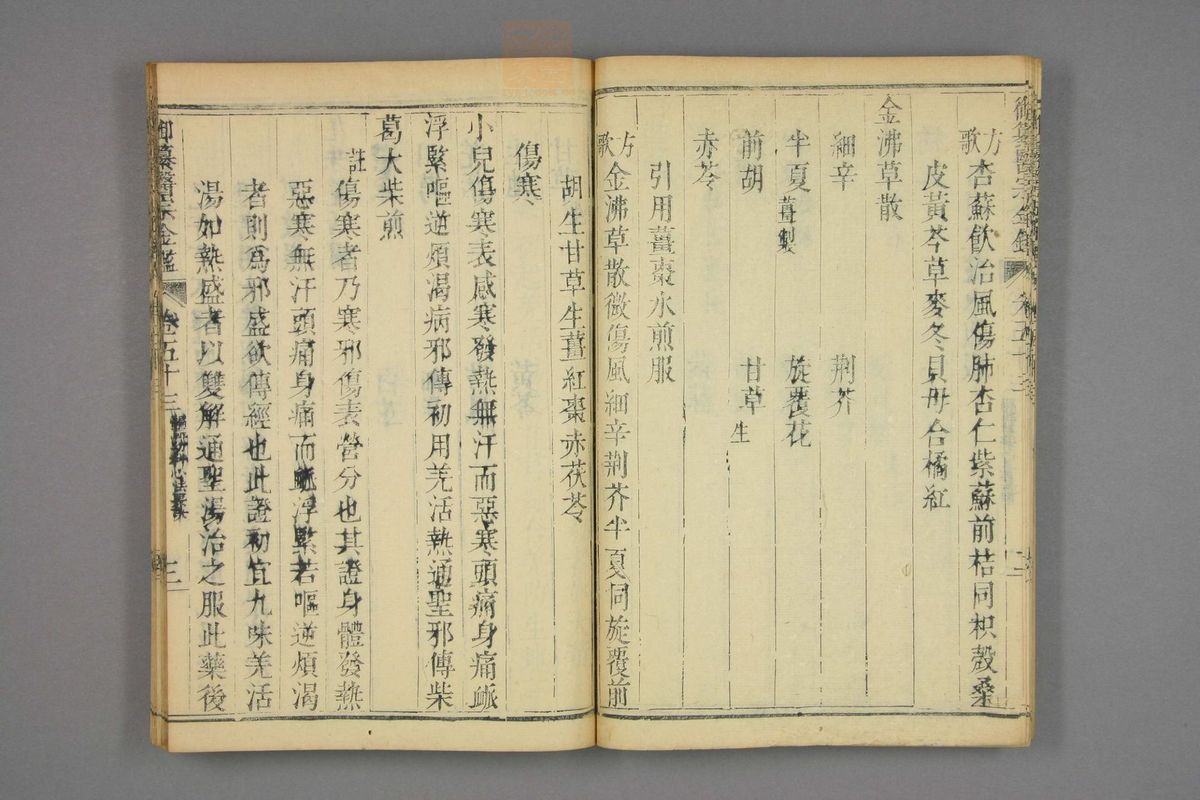 方歌 杏蘇飲治風傷肺杏仁紫蘇前桔同枳殼桑
皮黃芩草麥冬貝母合橘紅
金沸草散
細辛 荆芥
半夏薑製 旋覆花
前胡 甘草生
赤苓
引用薑棗水煎服
方歌 金沸草散微傷風細辛荆芥半夏同旋覆前
胡生甘草生薑紅棗赤茯苓
傷寒
小兒傷寒表感寒發熱無汗而惡寒頭痛身痛脈
浮緊嘔逆煩渴病邪傳初用羌活熱通聖邪傳柴
葛大柴煎
註 傷寒者乃寒邪傷表營分也其證身體發熱
惡寒無汗頭痛身痛而脈浮緊若嘔逆煩渴
者則爲邪盛欲傳經也此證初宜九味羌活
湯如熱盛者以雙解通聖湯治之服此藥後
御纂醫宗金鑑 卷五十三